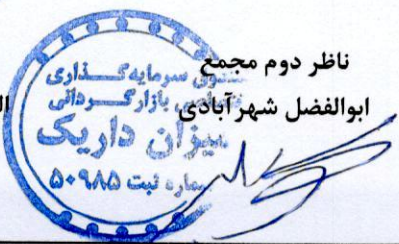 ناظر دوم مجمع
ابوالفضل شهرآبادی
صندوق سرمایه‌گـــذاری
اختصاصی بازارگـــردانی
میزان داریک
شماره ثبت ۵۰۹۸۵
ال